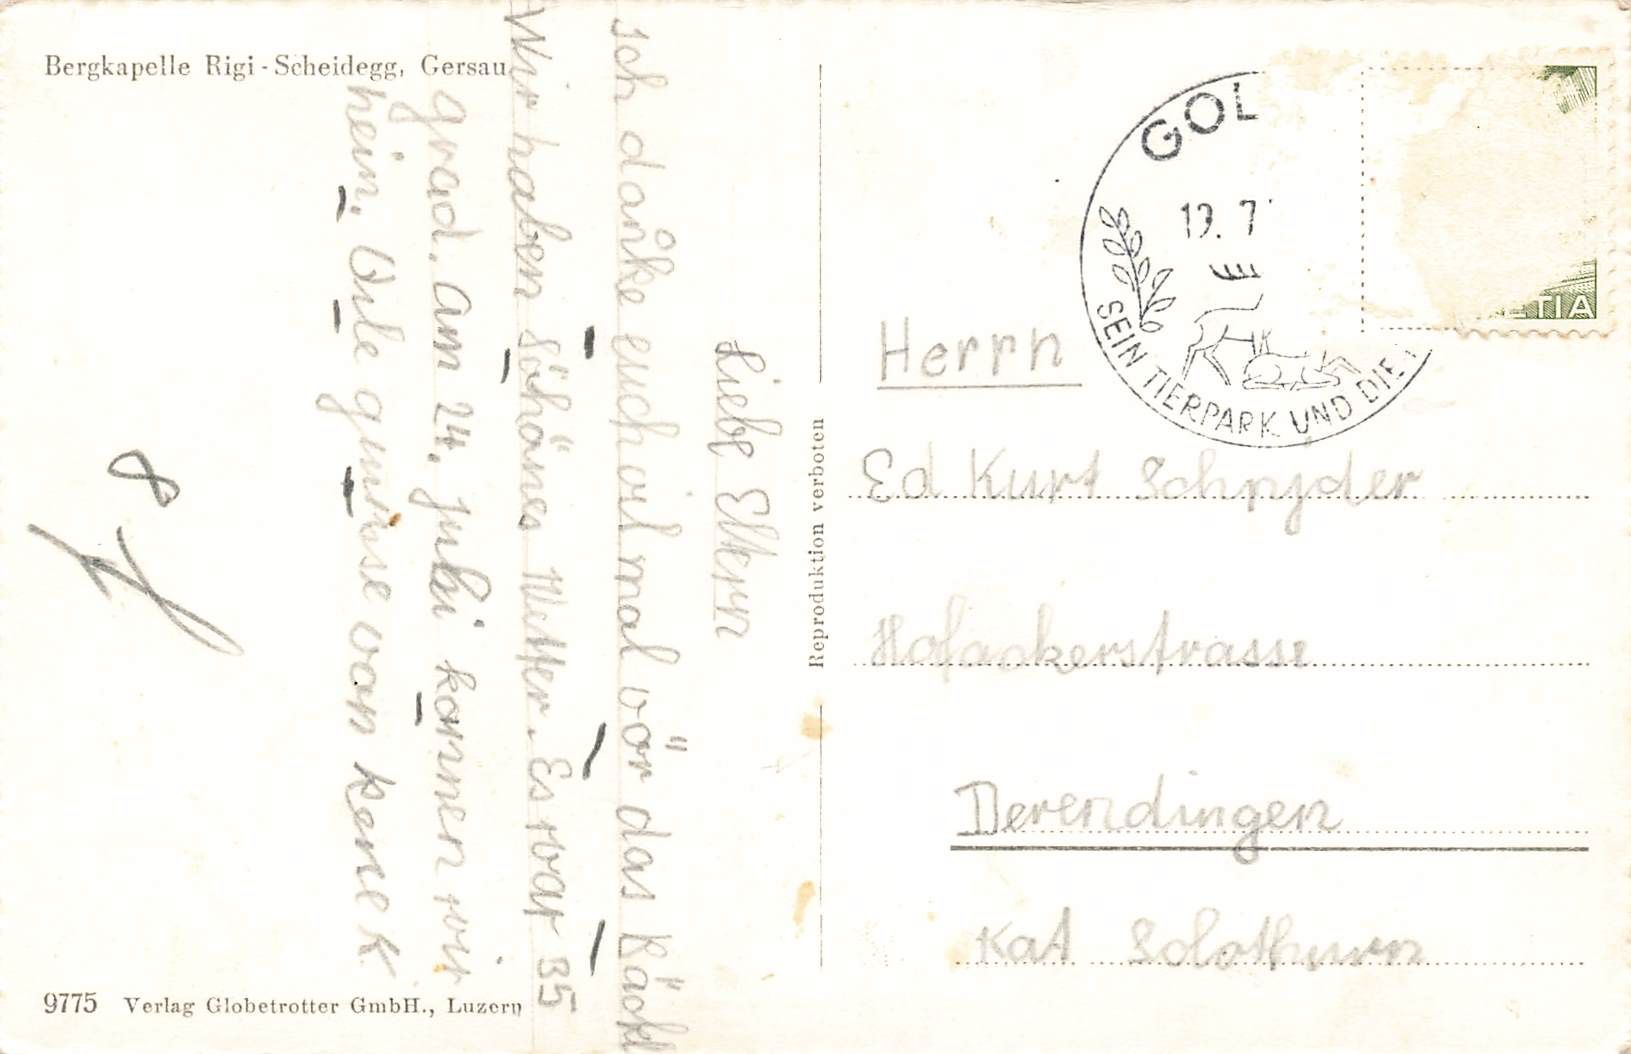 Bergkapelle Rigi-Scheidegg, Gersau
Liebe Eltern
Ich danke euch vilmal vör das Räckl
Wir haben schönes Wetter. Es war 35
grad. Am 24. juli kommen wir
hein. Vile grüsse von
9775 Verlag Globetrotter GmbH., Luzern
Reproduktion verboten
GOL
19. 7
SEIN TIERPARK UND DIE
HELVETIA
Herrn
Ed Kurt Schnyder
Hofackerstrasse
Derendingen
Kat Solothurn